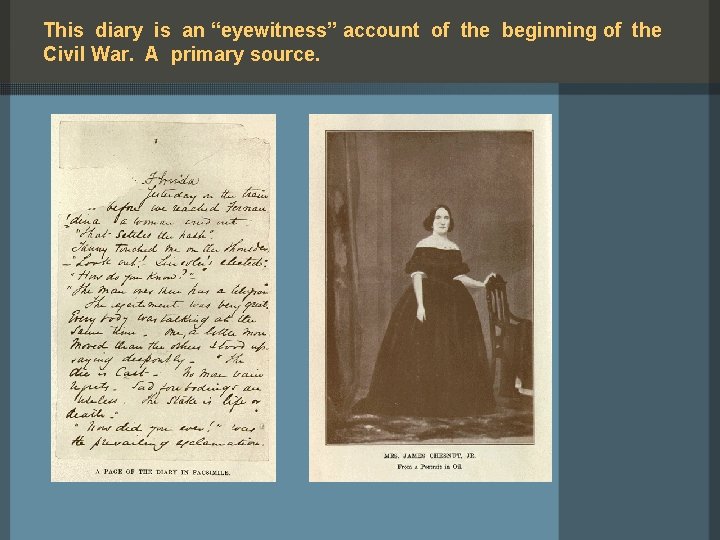 This diary is an “eyewitness” account of the beginning of the
Civil War. A primary source.
Florida
Yesterday on the train
before we reached Fernan
dina a woman cried out
"That settles the hash"
Tanny touched me on the shoulder
"Look out! Lincoln's elected."
"How do you know?"
"The man over there has a telegram
The excitement was very great
Every body was talking at the
same time. One, a little more
moved than the others stood up
saying despondently - "The
die is cast - No more vain
regrets - Sad forebodings are
useless. The stake is life or
death -"
"Now did you ever!" was
the prevailing exclamation.
A PAGE OF THE DIARY IN FACSIMILE.
MRS. JAMES CHESNUT, JR.
From a Portrait in Oil.